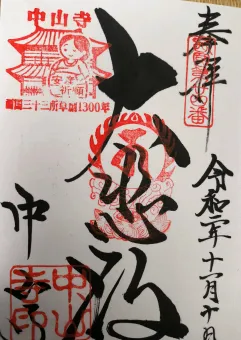 奉拝
大悲殿
令和二年十一月十日
中山寺
中山寺
安産
祈願
西国三十三所草創1300年
中山
寺印